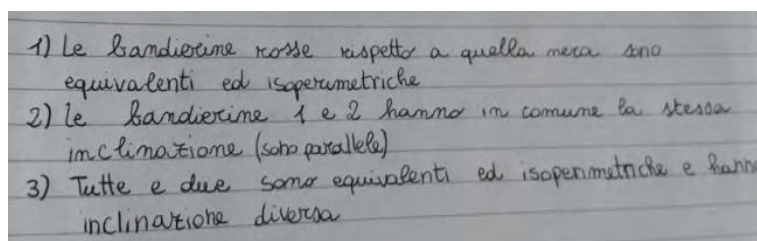 1) Le bandierine rosse rispetto a quella nera sono
equivalenti ed isoperimetriche
2) Le bandierine 1 e 2 hanno in comune la stessa
inclinazione (sono parallele)
3) Tutte e due sono equivalenti ed isoperimetriche e hanno
inclinazione diversa